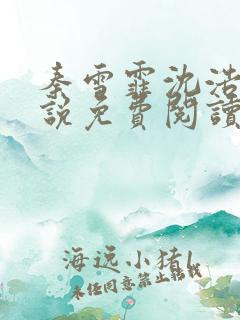 秦雪霏沈浩
說免費閱讀
海远小猪l
未经同意禁止转载